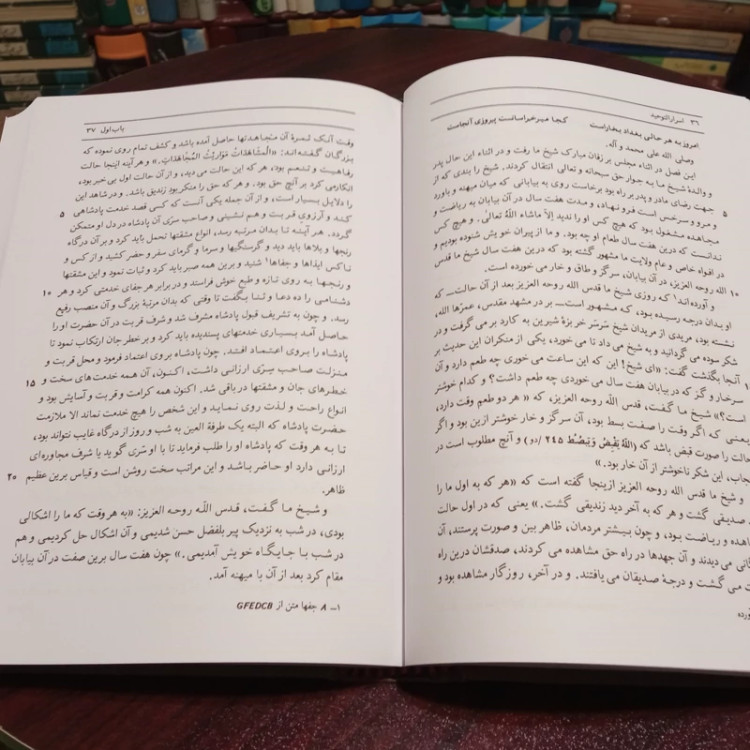 ۳۶ اسرارالتوحید
امروز به هر حالی بغداد بخاراست کجا میرخراسانست پیروزی آنجاست
وصلی الله علی محمد و آله.
این فصل در اثناء مجلس بر زفان مبارک شیخ ما رفت و در اثناء این حال پدر
و والدهٔ شیخ ما به جوار حق سبحانه و تعالی انتقال کردند. شیخ را بندی که از
۵ جهت رضای مادر و پدر بر راه بود برخاست روی به بیابانی که میان میهنه و باورد
و مرو و سرخس است فرو نهاد، و مدت هفت سال در آن بیابان به ریاضت و
مجاهده مشغول بود که هیچ کس او را ندید إلاّ ماشاء اللهُ تعالی. و هیچ کس
ندانست که درین هفت سال طعام او چه بود. و ما از پیران خویش شنوده بودیم و
در افواه خاص و عام ولایت ما مشهور گشته بود که درین هفت سال شیخ ما قدس
۱۰ الله روحه العزیز، در آن بیابان، سرگز و طاق و خار می خورده است.
و آورده اند¹ که روزی شیخ ما قدس الله روحه العزیز بعد از آن حالت ــ که
او بدان درجه رسیده بود، که مشهور است ــ بر در مشهد مقدس، عمرّها الله،
نشسته بود، مریدی از مریدان شیخ سَرسَر خربزهٔ شیرین به کارد بر می گرفت و در
شکر سوده می گردانید و به شیخ می داد تا می خورد، یکی از منکران این حدیث بر
آنجا بگذشت گفت: «ای شیخ! این که این ساعت می خوری چه طعم دارد و آن
سرخار و گز که در بیابان هفت سال می خوردی چه طعم داشت؟ و کدام خوشتر
است؟» شیخ ما گفت، قدس الله روحه العزیز، که «هر دو طعم وقت دارد،
یعنی که اگر وقت را صفت بسط بود، آن سرگز و خار خوشتر ازین بود و اگر
حالت را صورت قبض باشد که (اللهُ یَقبِضُ وَ یَبصُطُ ۲۴۵/دو) و آنچ مطلوب است در
حجاب، این شکر ناخوشتر از آن خار بود.»
و شیخ ما قدس الله روحه العزیز ازینجا گفته است که «هر که به اول ما را
صدیقی گشت و هر که به آخر دید زندیقی گشت.» یعنی که در اول حالت
مجاهده و ریاضت بود، و چون بیشتر مردمان، ظاهر بین و صورت پرستند، آن
می دیدند و آن جهدها در راه حق مشاهده می کردند، صدقشان درین راه
می گشت و درجهٔ صدیقان می یافتند. و در آخر، روزگار مشاهده بود و
باب اول ۳۷
وقت آنک ثمرهٔ آن مجاهدتها حاصل آمده باشد و کشف تمام روی نموده که
بزرگان گفته اند: «المُشاهَداتُ مَواریثُ المُجاهَداتِ.» و هر آینه اینجا حالت
رفاهیت و تنعم بود، هر که این حالت می دید، و از آن حالت اول بی خبر بود،
انکارمی کرد بر آنچ حق بود. و هر که حق را منکر بود زندیق باشد. و در شاهد این
۵ را دلایل بسیار است، و از آن جمله یکی آنست که کسی قصد خدمت پادشاهی
کند و آرزوی قربت و هم نشینی و صاحب سرّی آن پادشاه در دل او متمکن
گردد. هر آینه تا بدان مرتبه رسد، انواع مشقتها تحمل باید کرد و بر آن درگاه
رنجها و بلاها باید دید و گرسنگیها و سرما و گرمای سفر و حضر کشید و از کس و
ناکس ایذاها و جفاها¹ شنید و برین همه صبر باید کرد و ثبات نمود و این مشقتها
۱۰ و رنجها به روی تازه و طبع خوش فراستد و در برابر هر جفای خدمتی کرد و هر
دشنامی را ده دعا و ثنا بگفت تا وقتی که بدان مرتبهٔ بزرگ و آن منصب رفیع
رسد. و چون به تشریف قبول پادشاه مشرف شد و شرف قربت در آن حضرت او را
حاصل آمد بسیاری خدمتهای پسندیده باید کرد و بر خطر جان ارتکاب نمود تا
پادشاه را بروی اعتماد افتد. چون پادشاه بروی اعتماد فرمود و محل قربت و
۱۵ منزلت صاحب سرّی ارزانی داشت، اکنون، آن همه خدمت های سخت و
خطرهای جان و مشقتها در باقی شد. اکنون همه کرامت و قربت و آسایش بود و
انواع راحت و لذت روی نماید و این شخص را هیچ خدمت نماند الا ملازمت
حضرت پادشاه که البته یک طرفة العین به شب و روز از درگاه غایب نتواند بود،
تا به هر وقت که پادشاه او را طلب فرماید تا با او سرّی گوید یا شرف مجاوره ای
۲۰ ارزانی دارد او حاضر باشد و این مراتب سخت روشن است و قیاس برین عظیم
ظاهر.
و شیخ ما گفت، قدس الله روحه العزیز: «به هر وقت که ما را اشکالی
بودی، در شب به نزدیک پیر بلفضل حسن شدیمی و آن اشکال حل کردیمی و هم
در شب با جایگاه خویش آمدیمی.» چون هفت سال برین صفت در آن بیابان
مقام کرد بعد از آن با میهنه آمد.
۱ــ A جفها متن از GFEDCB